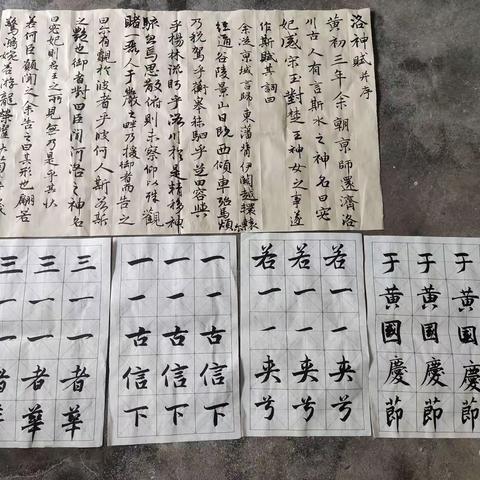 洛神賦并序
黄初三年余朝京師還濟洛
川古人有言斯水之神名曰宓
妃感宋玉對楚王神女之事遂
作斯賦其詞曰
余從京域言歸東藩背伊闕越轘轅
經通谷陵景山日既西傾車殆馬煩
乃稅駕乎蘅皋秣駟乎芝田容與
乎楊林流眄乎洛川於是精移神
駭忽焉思散俯則未察仰以殊觀
睹一麗人于巖之畔乃援御者而告之
曰尔有覿於彼者乎彼何人斯若斯
之艷也御者對曰臣聞河洛之神名
曰宓妃則君王之所見無乃是乎其狀
若何臣願聞之余告之曰其形也翩若
驚鴻婉若游龍榮曜秋菊
于黄國慶節
于黄國慶節
于黄國慶節
若一一夹兮
若一一夹兮
若一一夹兮
一一古信下
一一古信下
一一古信下
三一一者華
三一一者華
三一一者華